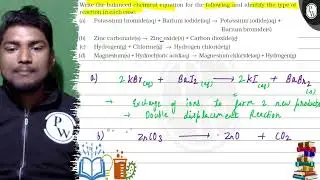 Write the balanced chemical equation for the following and identify the type of
reaction in each case.
(a) Potassium bromide(aq) + Barium iodide(aq) → Potassium iodide(aq) +
Barium bromide(s)
(b) Zinc carbonate(s) → Zinc oxide(s) + Carbon dioxide(g)
(c) Hydrogen(g) + Chlorine(g) → Hydrogen chloride(g)
(d) Magnesium(s) + Hydrochloric acid(aq) → Magnesium chloride(aq) + Hydrogen(g)
a) 2 KBr(aq) + BaI2(aq) → 2 KI(aq) + BaBr2(s)
→ Exchange of ions to form 2 new products
→ Double displacement Reaction
b) ZnCO3 → ZnO + CO2
PW